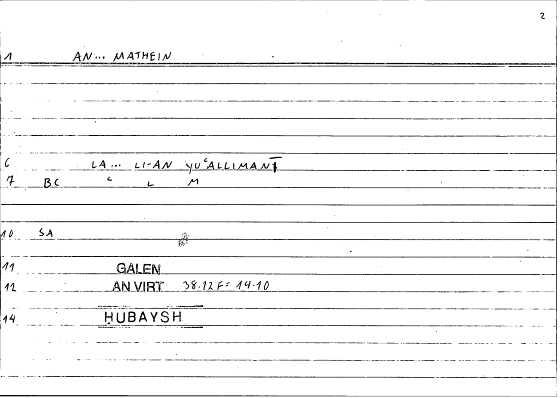 2
1 AN... MATHEIN
6 LA... LI-AN YUʿALLIMANĪ
7 BC ʿ L M
10 SA
11 GALEN
12 AN VIRT 38.12 F = 14.10
14 ḤUBAYSH